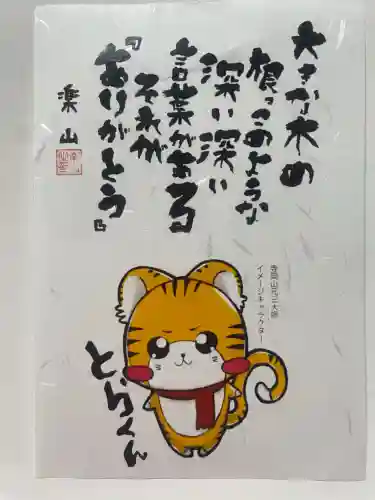 大きな木の
根っこのような
深い深い
言葉がある
それが
『ありがとう』
楽山
寺岡山元三大師
イメージキャラクター
とらくん